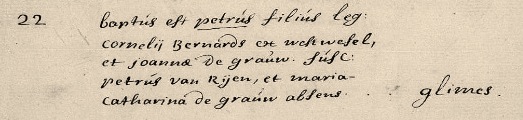 22 baptus est petrus filius leg:
Cornelij Bernards ex westwesel,
et joannæ de grauw. susc:
petrus van Rijen, et maria-
Catharina de grauw absens. . . glimes.